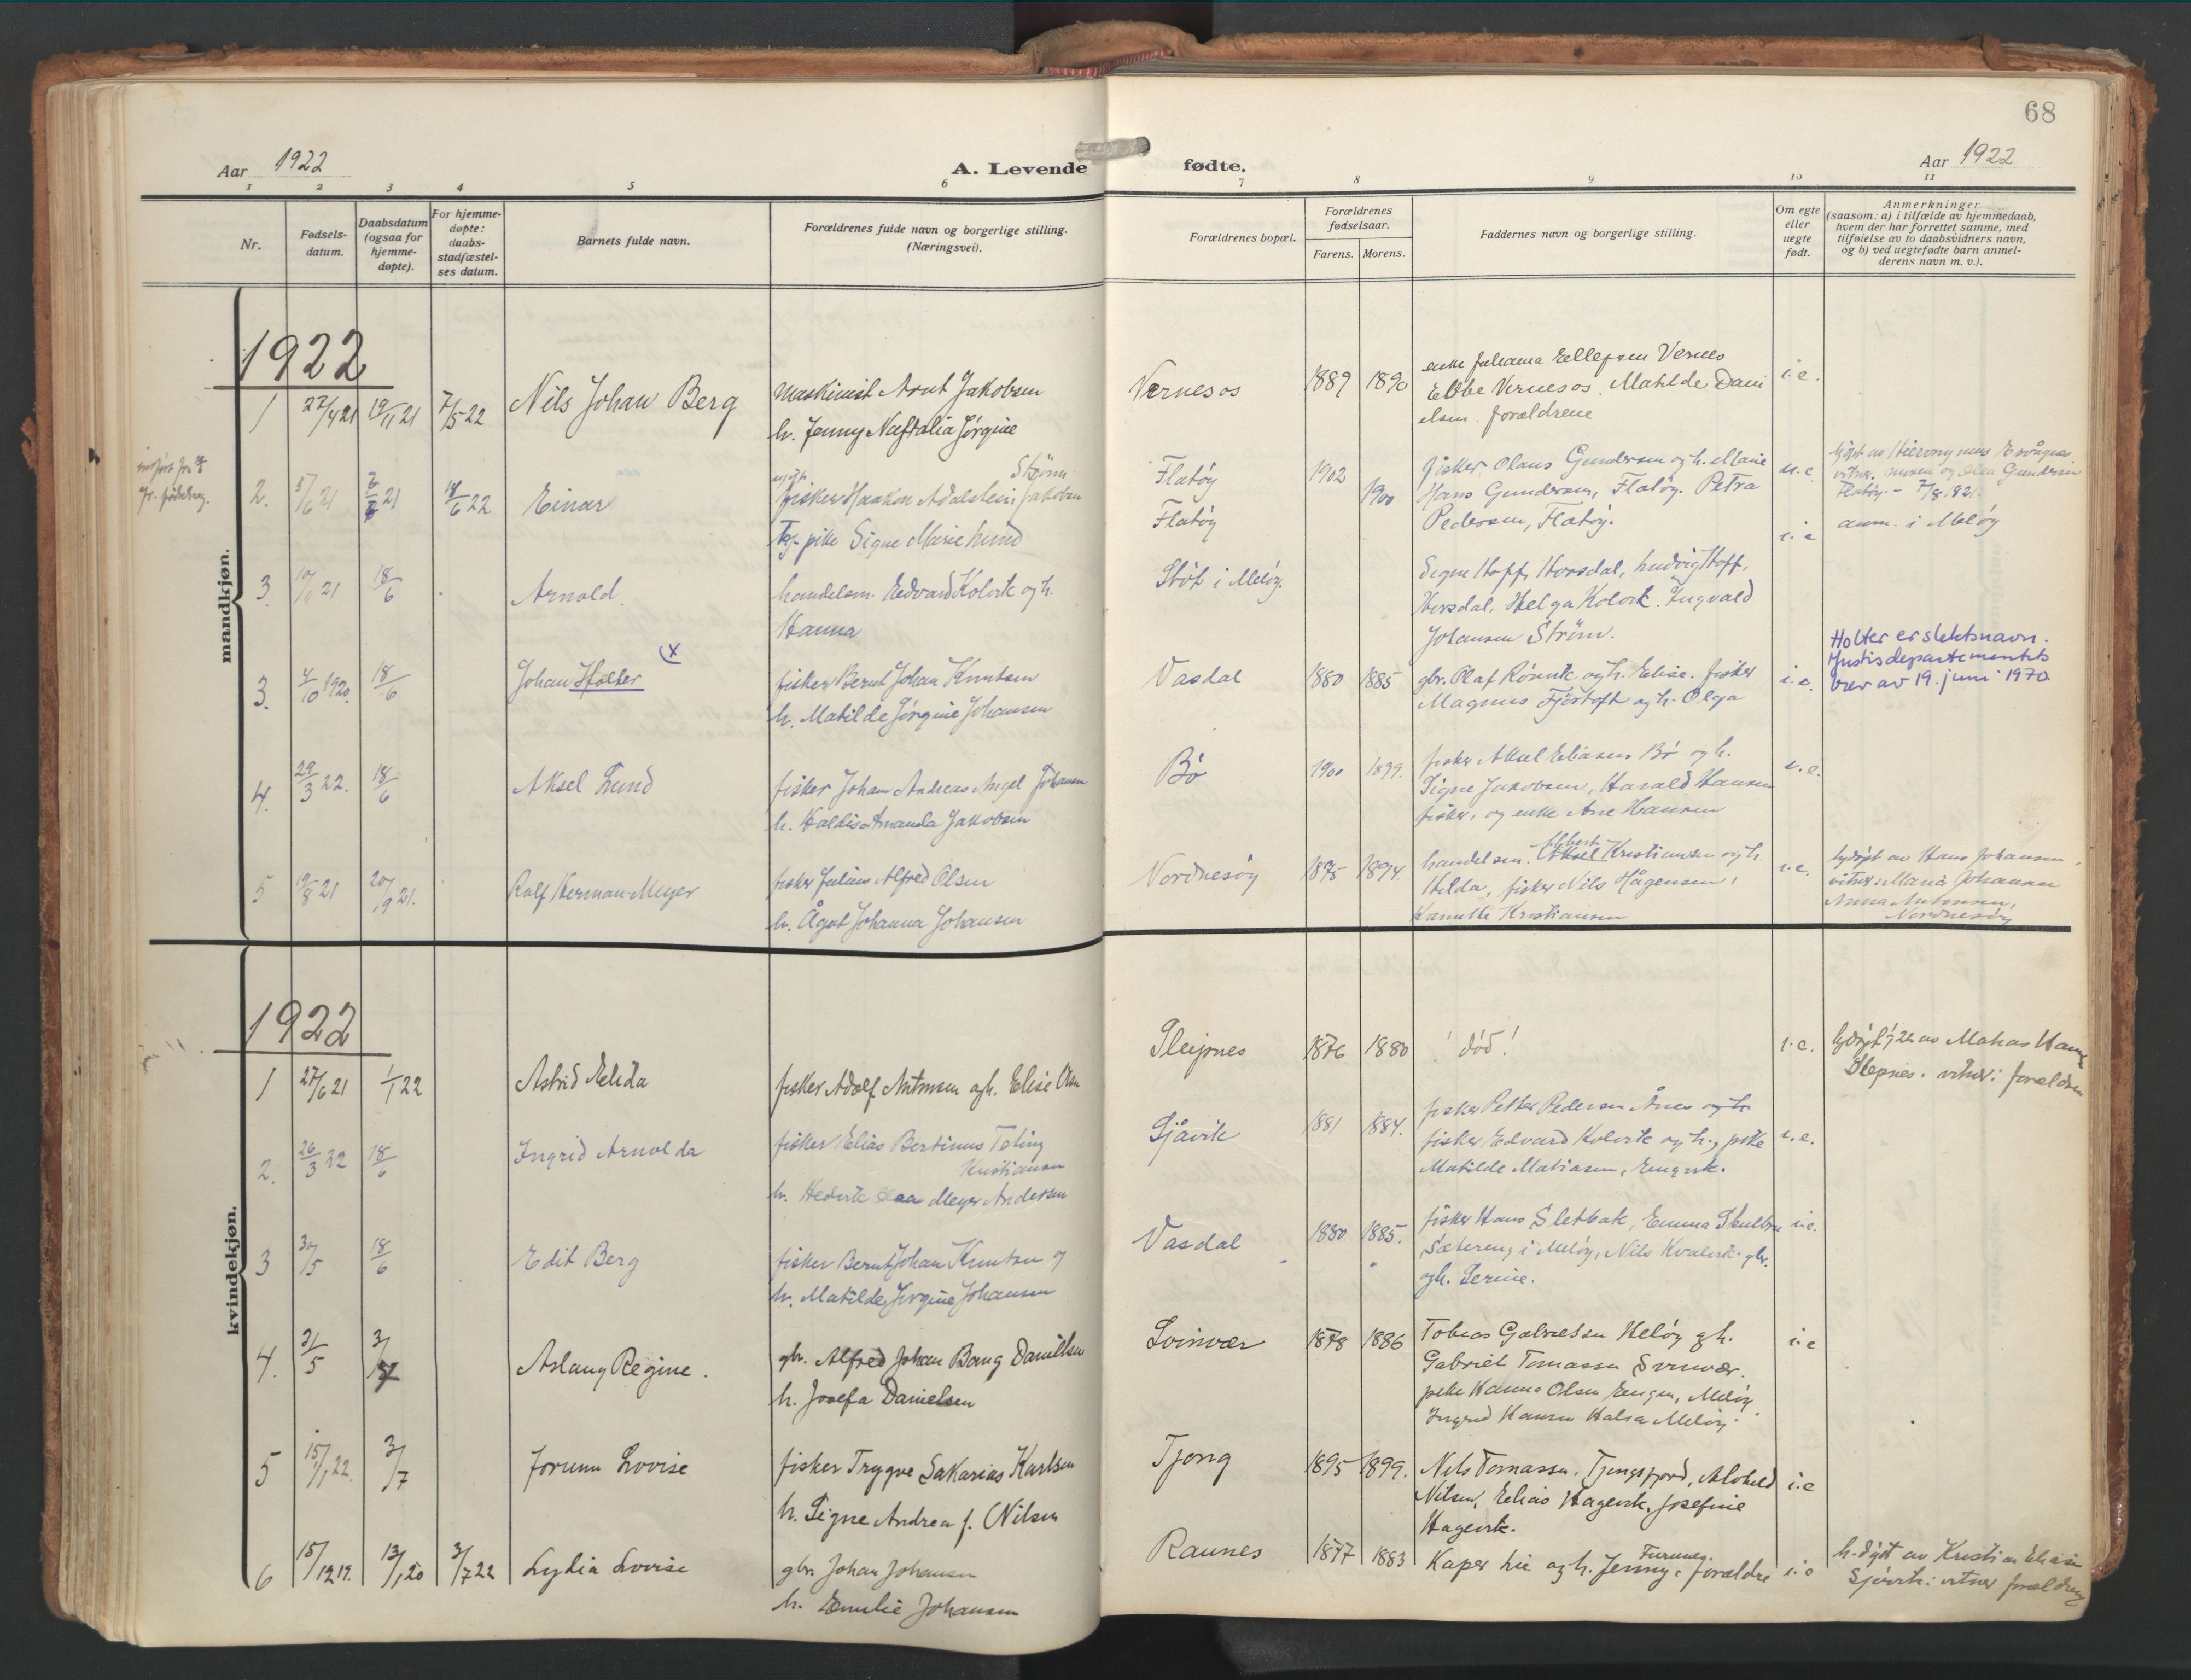 68
Aar 1922
A. Levende fødte.
Aar 1922
1 2 3 4 5 6 7 8 9 10 11
Nr.
Fødsels-
datum.
Daabsdatum
(ogsaa for
hjemme-
døpte).
For hjemme-
døpte:
daabs-
stadfæstel-
ses datum.
Barnets fulde navn.
Forældrenes fulde navn og borgerlige stilling.
(Næringsvei).
Forældrenes bopæl.
Forældrenes
fødselsaar.
Farens. Morens.
Faddernes navn og borgerlige stilling.
Om egte
eller
uegte
født.
Anmerkninger
(saasom: a) i tilfælde av hjemmedaab,
hvem der har forrettet samme, med
tilføielse av to daabsvidners navn,
og b) ved uegtefødte barn anmel-
derens navn m. v.).
mandkjøn.
1922
1 27/4 21 19/11 21 7/5 22 Nils Johan Berg
maskinist Arnt Jakobsen
h. Jenny Naftalia Jørgine
Vernesos 1889 1890
enke Juliana Ellefsen Vernes
Ebbe Vernesos. Matilde Dani
elsen. forældrene
i.e.
2. 5/6 21 21 18/6 22 Einar
Strøm
fisker Haakon Adalstein Jakobsen
pike Signe Marie Lund
Flatøy
Flatøy
1902 1900
fisker Olaus Gundersen og h. Marie
Hans Gundersen, Flatøy. Petra
Pedersen, Flatøy.
u.e.
Hieronymus Evågnes
vitner, moren og Olea Gundersen
Flatøy - 7/8 1921.
anm. i Meløy
3. 10/6 21 18/6 Arnold.
handelsm. Edvard Kolvik og h.
Hanna
Støt i Meløy.
i. e
Signe Hoff, Horsdal, Ludvig Hoff,
Horsdal. Helga Kolvik. Ingvald
Johansen Strøm.
3. 4/10 1920. 18/6 Johan Holter x
fisker Bernt Johan Knutsen
h. Matilde Jørgine Johansen
Vasdal 1880 1885
gbr. Olaf Rørvik og h. Elise. fisker
Magnus Fjørtoft og h. Olga
i.e.
Holter er slektsnavn.
Justisdepartementets
brev av 19. juni 1970
4. 29/3 22. 18/6 Aksel Lund
fisker Johan Andreas Angel Johansen
h. Haldis Amanda Jakobsen
Bø 1900 1899.
fisker Aksel Eliassen Bø og h.
Signe Jakobsen, Harald Hansen
fisker, og enke Ane Hansen
i.e.
5 19/8 21 20/9 21. Rolf Herman Meyer
fisker Julius Alfred Olsen
h. Ågot Johanna Johansen
Nordnesøy 1875 1894.
handelsm. Aksel Kristiansen og h.
Hilda, fisker Nils Hågensen,
Kristiansen
i.e.
hjdøpt av Hans Johansen,
vitner: Maria Johansen
Anna Antonsen,
Nordnesøy
kvindekjøn.
1922
1 27/6 21 1/1 22 Astrid Elida
fisker Adolf Antonsen og h. Elise Olsen
Sleipnes 1876 1880 ! død! i.e.
hjdøpt 1/1 22 av Matias Hansen
Slepnes. vitner: forældrene
2. 26/3 22 18/6 Ingrid Arnolda
fisker Elias Bertinus Toling
Kristiansen
h. Hedvik Meyer Andersen
Sjåvik 1881 1884.
fisker Petter Pedersen Ånes og h.
fisker Edvard Kolvik og h., pike
Matilde Matiasen, Engvik.
i.e.
3 30/5 18/6 Edit Berg
fisker Bernt Johan Knutsen og
h. Matilde Jørgine Johansen
Vasdal 1880 1885.
fisker Hans Sletbak, Emma Skulbru
Sætereng i Meløy, Nils Kvalvik gbr.
og h. Serine.
i.e.
4. 31/5 3/7 Aslaug Regine.
gbr. Alfred Johan Bang Danielsen
h. Josefa Danielsen
Svinvær 1878 1886
Tobias Gabrielsen Meløy og h.
Gabriel Tomassen Svinvær.
pike Hanna Olsen Engen, Meløy
Ingrid Hansen Halsa Meløy.
i.e
5 15/1 22. 3/7 Jorunn Lovise
fisker Trygve Sakarias Karlsen
h. Signe Andrea f. Nilsen
Tjong 1895 1899.
Nils Tomassen, Tjongsfjord, Alvhild
Nilsen, Elias Hagevik, Josefine
Hagevik.
i.e
6 15/12 19. 13/1 20 3/7 22 Lydia Lovise
gbr. Johan Johansen
h. Emilie Johansen
Raunes 1877 1883
Kaper Lie og h. Jenny, forældre
i.e
h.døpt av Kristian Eliasen
Sjøvik: vitner forældrene